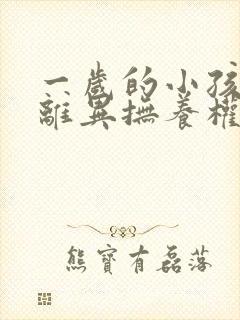 一歲的小孩
離異撫養權
熊寶有磊落